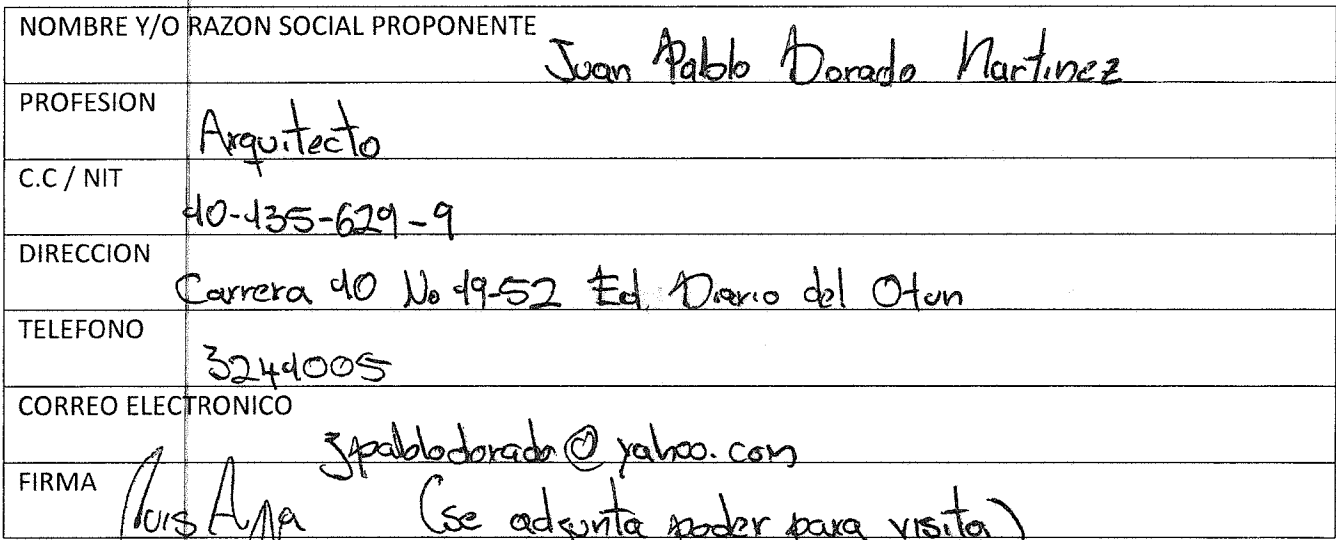 NOMBRE Y/O RAZON SOCIAL PROPONENTE
Juan Pablo Dorado Martinez
PROFESION
Arquitecto
C.C / NIT
10-135-629-9
DIRECCION
Carrera 10 No 19-52 Ed. Diario del Otun
TELEFONO
3241005
CORREO ELECTRONICO
jpablodorado@yahoo.com
FIRMA
Luis (se adjunta poder para visita)